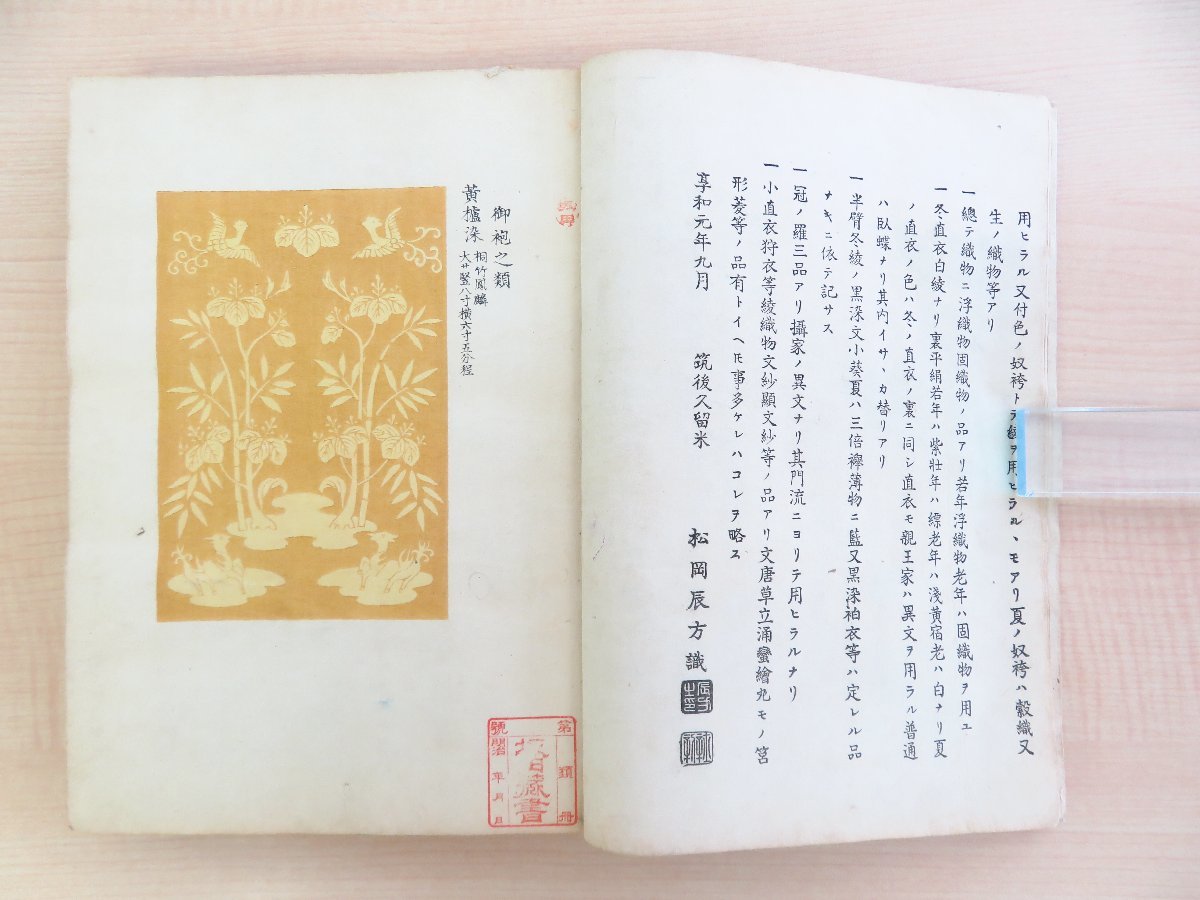 用ヒラル又付色ノ奴袴トテ経ヲ用ヒラルヽモアリ夏ノ奴袴ハ縠織又
生ノ織物等アリ
一總テ織物ニ浮織物固織物ノ品アリ若年浮織物老年ハ固織物ヲ用ユ
一冬直衣白綾ナリ裏平絹若年ハ紫壮年ハ縹老年ハ淺黄宿老ハ白ナリ夏
ノ直衣ノ色ハ冬ノ直衣ノ裏ニ同シ直衣モ親王家ハ異文ヲ用ラル普通
ハ臥蝶ナリ其内イサヽカ替リアリ
一半臂冬綾ノ黒染文小葵夏ハ三倍襷薄物ニ藍又黒染袙衣等ハ定レル品
ナキニ依テ記サス
一冠ノ羅三品アリ攝家ノ異文ナリ其門流ニヨリテ用ヒラルナリ
一小直衣狩衣等綾織物文紗顯文紗等ノ品アリ文唐草立涌蠻繪丸モノ筥
形菱等ノ品有トイヘ𪜈事多ケレハコレヲ略ス
享和元年九月 筑後久留米 松岡辰方識
御袍之類
黄櫨染 桐竹鳳麟
大サ竪八寸横六寸五分程
第 類 冊
藏書
號 明治 年 月 日